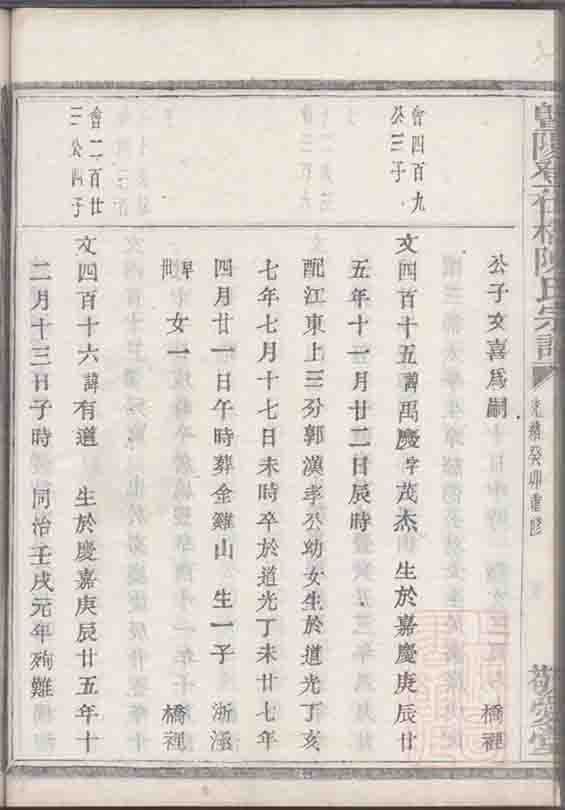 暨陽登仕橋陳氏宗譜
光緒癸卯重修
敬愛堂
公子文喜為嗣 橋裡
會四百九
公三子
文四百十五諱禹慶字茂杰 生於嘉慶庚辰廿
五年十一月廿二日辰時
配江東上三分郭漢孝公幼女生於道光丁亥
七年七月十七日未時卒於道光丁未廿七年
四月廿一日午時葬金雞山 生一子 浙涵
早世 女一 橋裡
會二百廿
三公四子
文四百十六諱有道 生於慶嘉庚辰廿五年十
二月十三日子時 同治壬戌元年殉難